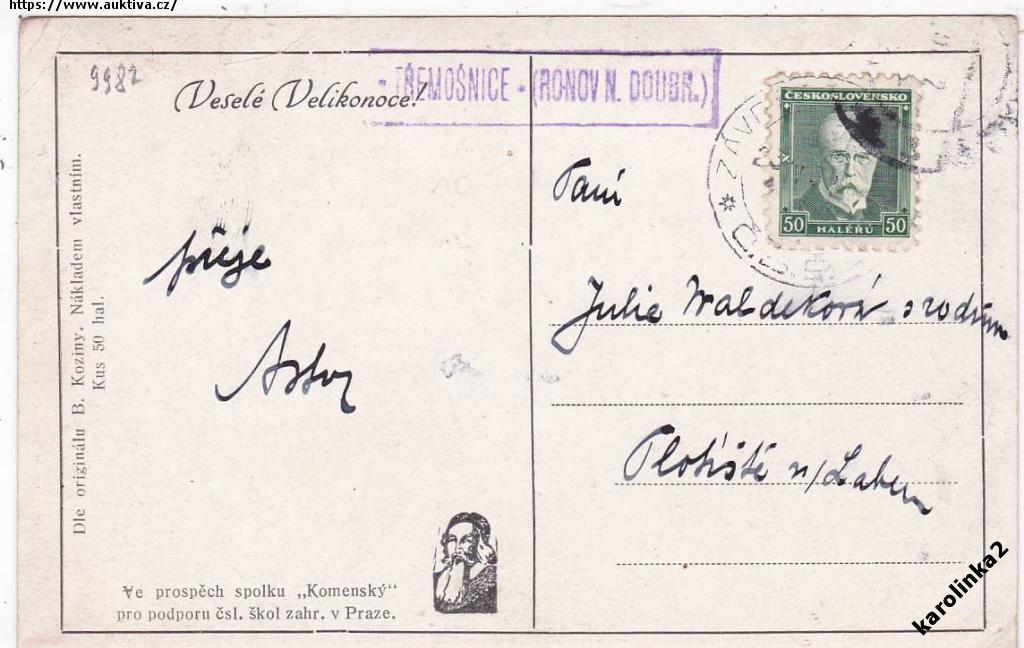 https://www.auktiva.cz/
9982
Veselé Velikonoce!
TŘEMOŠNICE - (RONOV N. DOUBR.)
ČESKOSLOVENSKO
50 HALÉŘŮ 50
přeje
Dle originálu B. Koziny. Nákladem vlastním.
Kus 50 hal.
Ve prospěch spolku „Komenský“
pro podporu čsl. škol zahr. v Praze.
Paní
Julie Waldeková s rodinou
Plotiště n/Labem
karolinka2